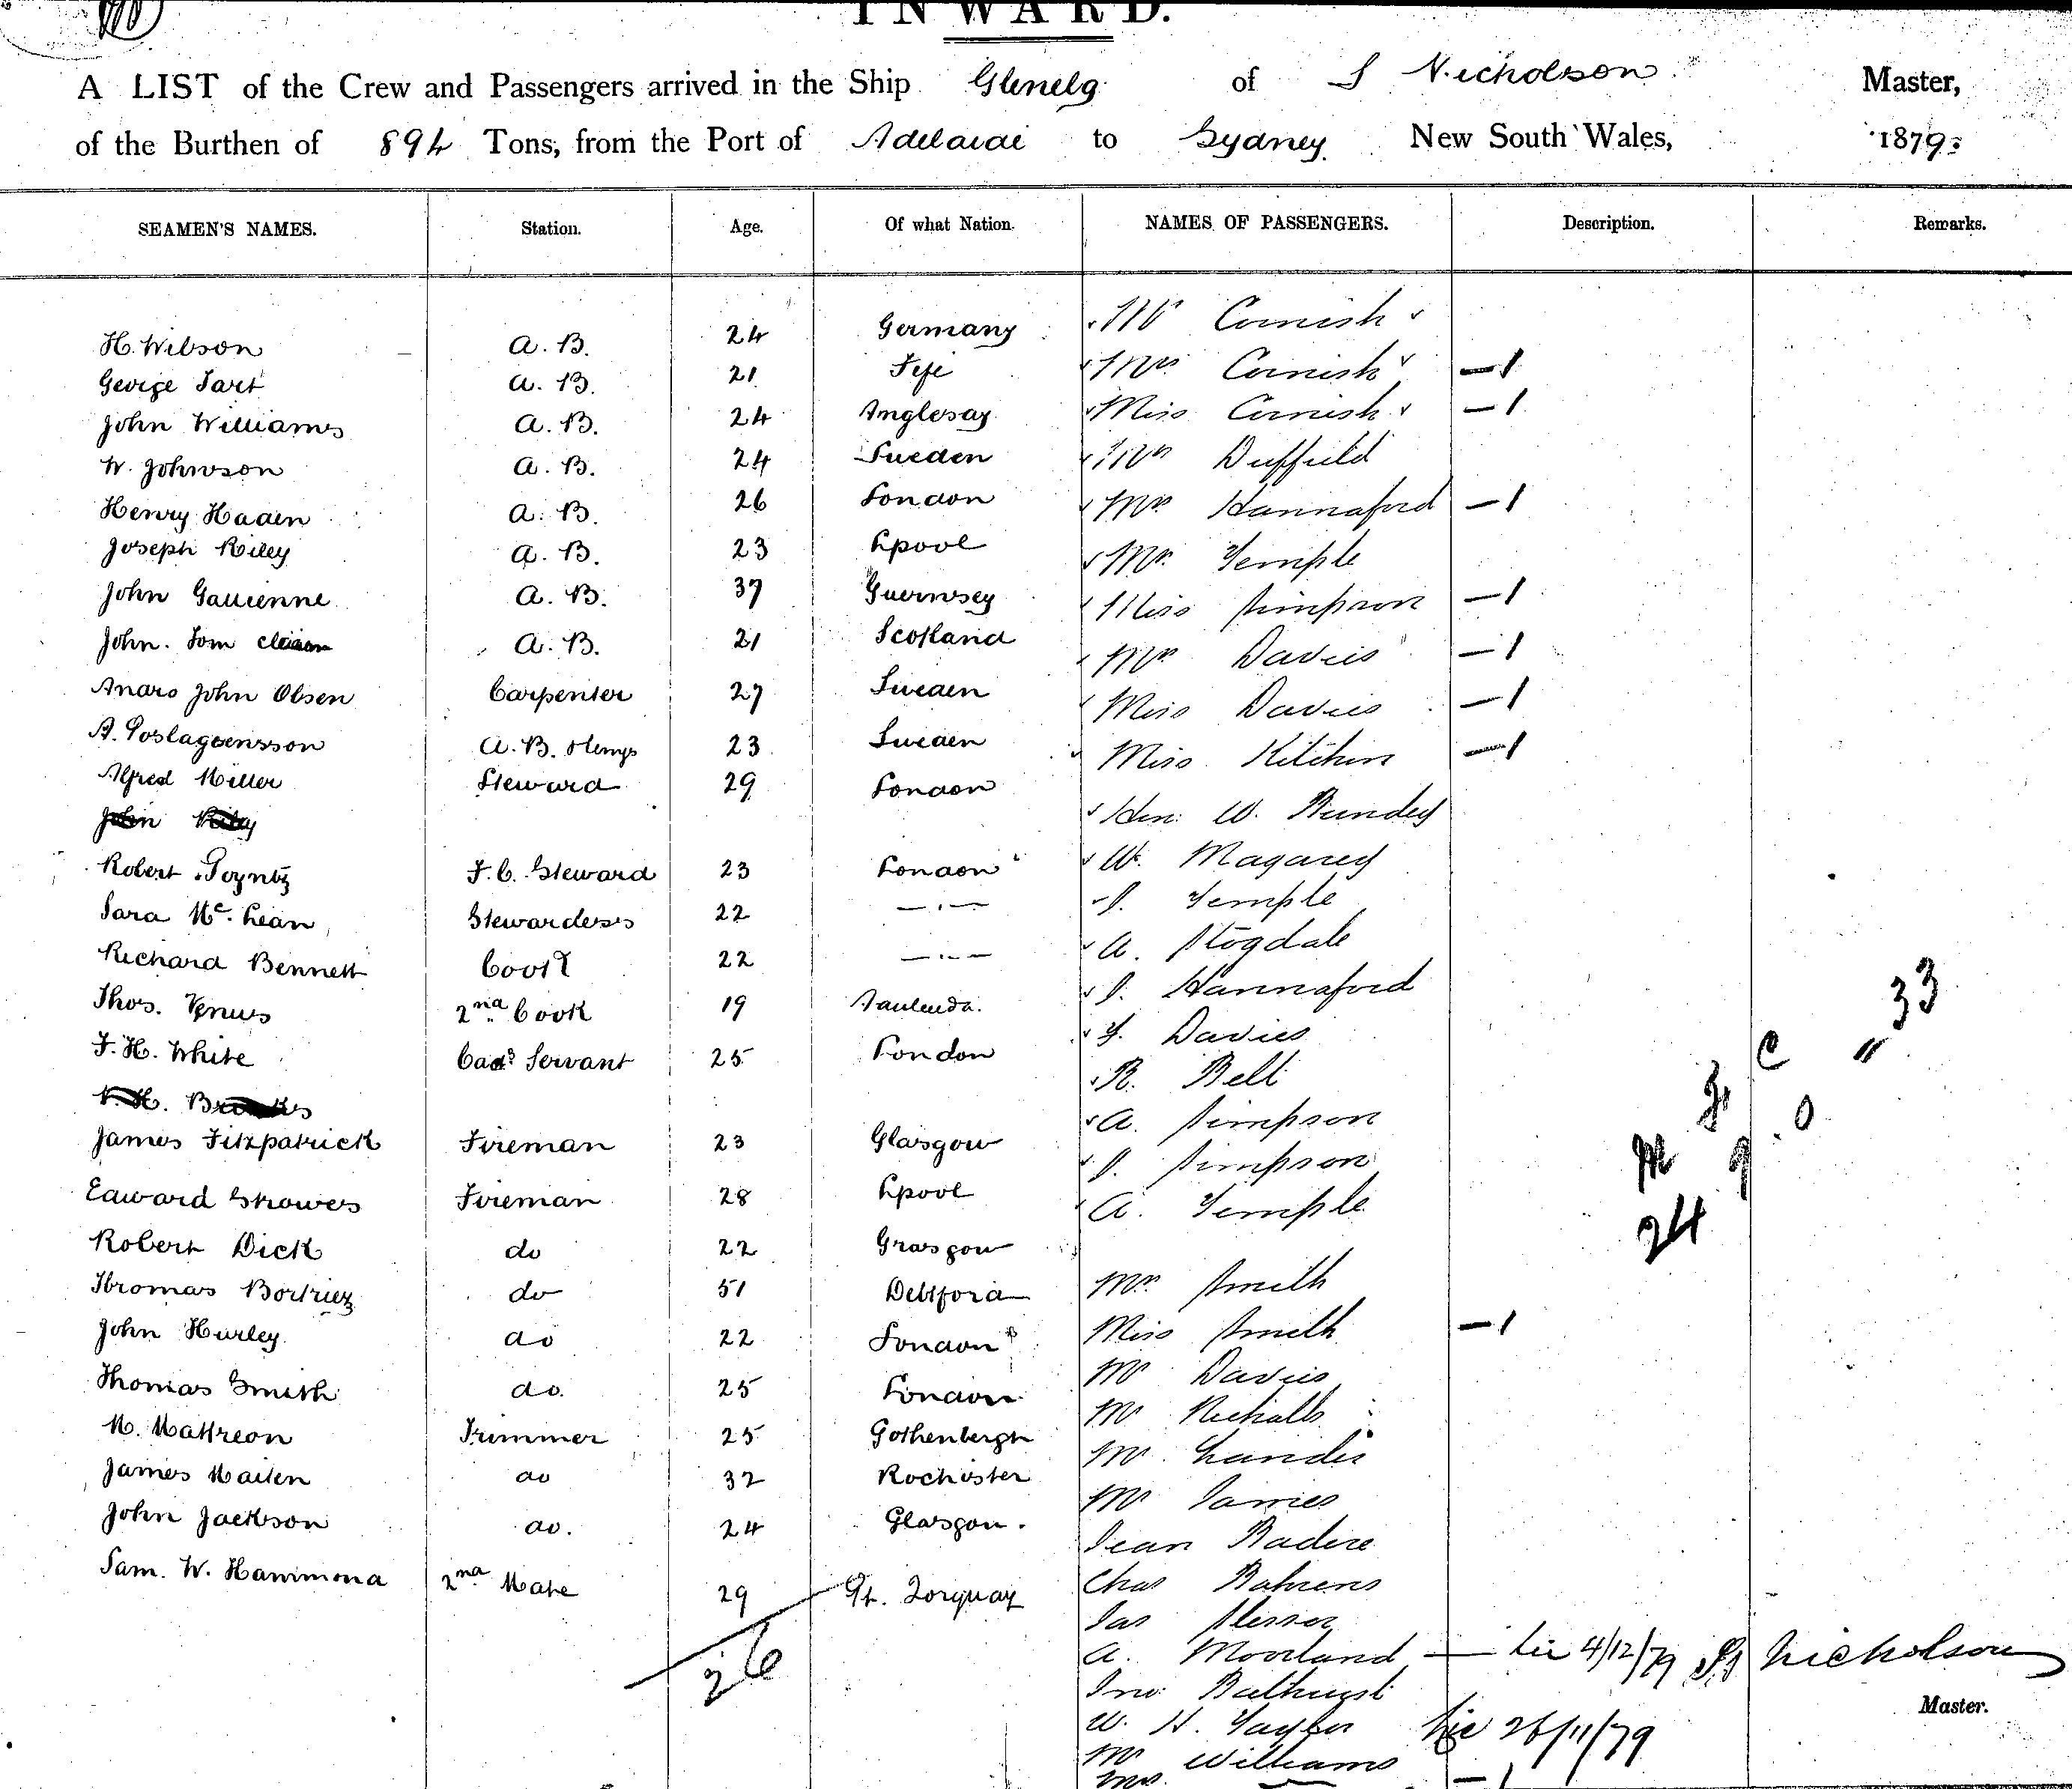 INWARD.
A LIST of the Crew and Passengers arrived in the Ship Glenelg of J Nicholson Master,
of the Burthen of 894 Tons, from the Port of Adelaide to Sydney New South Wales, 1879.
SEAMEN'S NAMES. Station. Age. Of what Nation. NAMES OF PASSENGERS. Description. Remarks.
H. Wilson A. B. 24 Germany Mr Cornish
George Tart A. B. 21 Fife Mrs Cornish — 1
John Williams A. B. 24 Anglesay Miss Cornish — 1
W. Johnson A. B. 24 Sweden Duffield
Henry Haden A. B. 26 London Mrs Hannaford — 1
Joseph Riley A. B. 23 Lpool Mr. Temple
John Gallienne A. B. 37 Guernsey Miss Simpson — 1
John. Tom A. B. 21 Scotland Mrs Davies — 1
Andrs John Olsen Carpenter 27 Sweden Miss Davies — 1
A. A. B. 23 Sweden Miss Kitchin — 1
Alfred Miller Steward 29 London Hon: W. Bundey
John Riley
Robert Poyntz F. C. Steward 23 London W. Magarey
Sara Mc. Lean Stewardess 22 — . — J. Temple
Richard Bennett Cook 22 — . — A. Stogdale
Thos. Venus 2nd Cook 19 J. Hannaford
F. H. White Cads Servant 25 London Davies
R. Bell
33
C "
James Fitzpatrick Fireman 23 Glasgow A. Simpson
0
J. Simpson
Edward Showes Fireman 28 Lpool A. Temple
24
Robert Dick do 22 Grasgow
Thomas do 51 Debtford Mrs Smith
John Hurley do 22 London Miss Smith — 1
Thomas Smith do. 25 London Mr Davies
Mr Nicholls
M. Mattreon Trimmer 25 Gothenbergh Mr Landis
James Maiten do 32 Rochester Mr James
John Jackson do. 24 Glasgow. Jean Badere
Sam. W. Hammond 2nd Mate 29 Torquay Chas Bahrens
26
Jas
A. Moorland — Lic 4/12/79 J Nicholson
Jno Bathurst
Master.
W. H. Taylor Lic 26/11/79
Mr Williams
Mrs. — 1